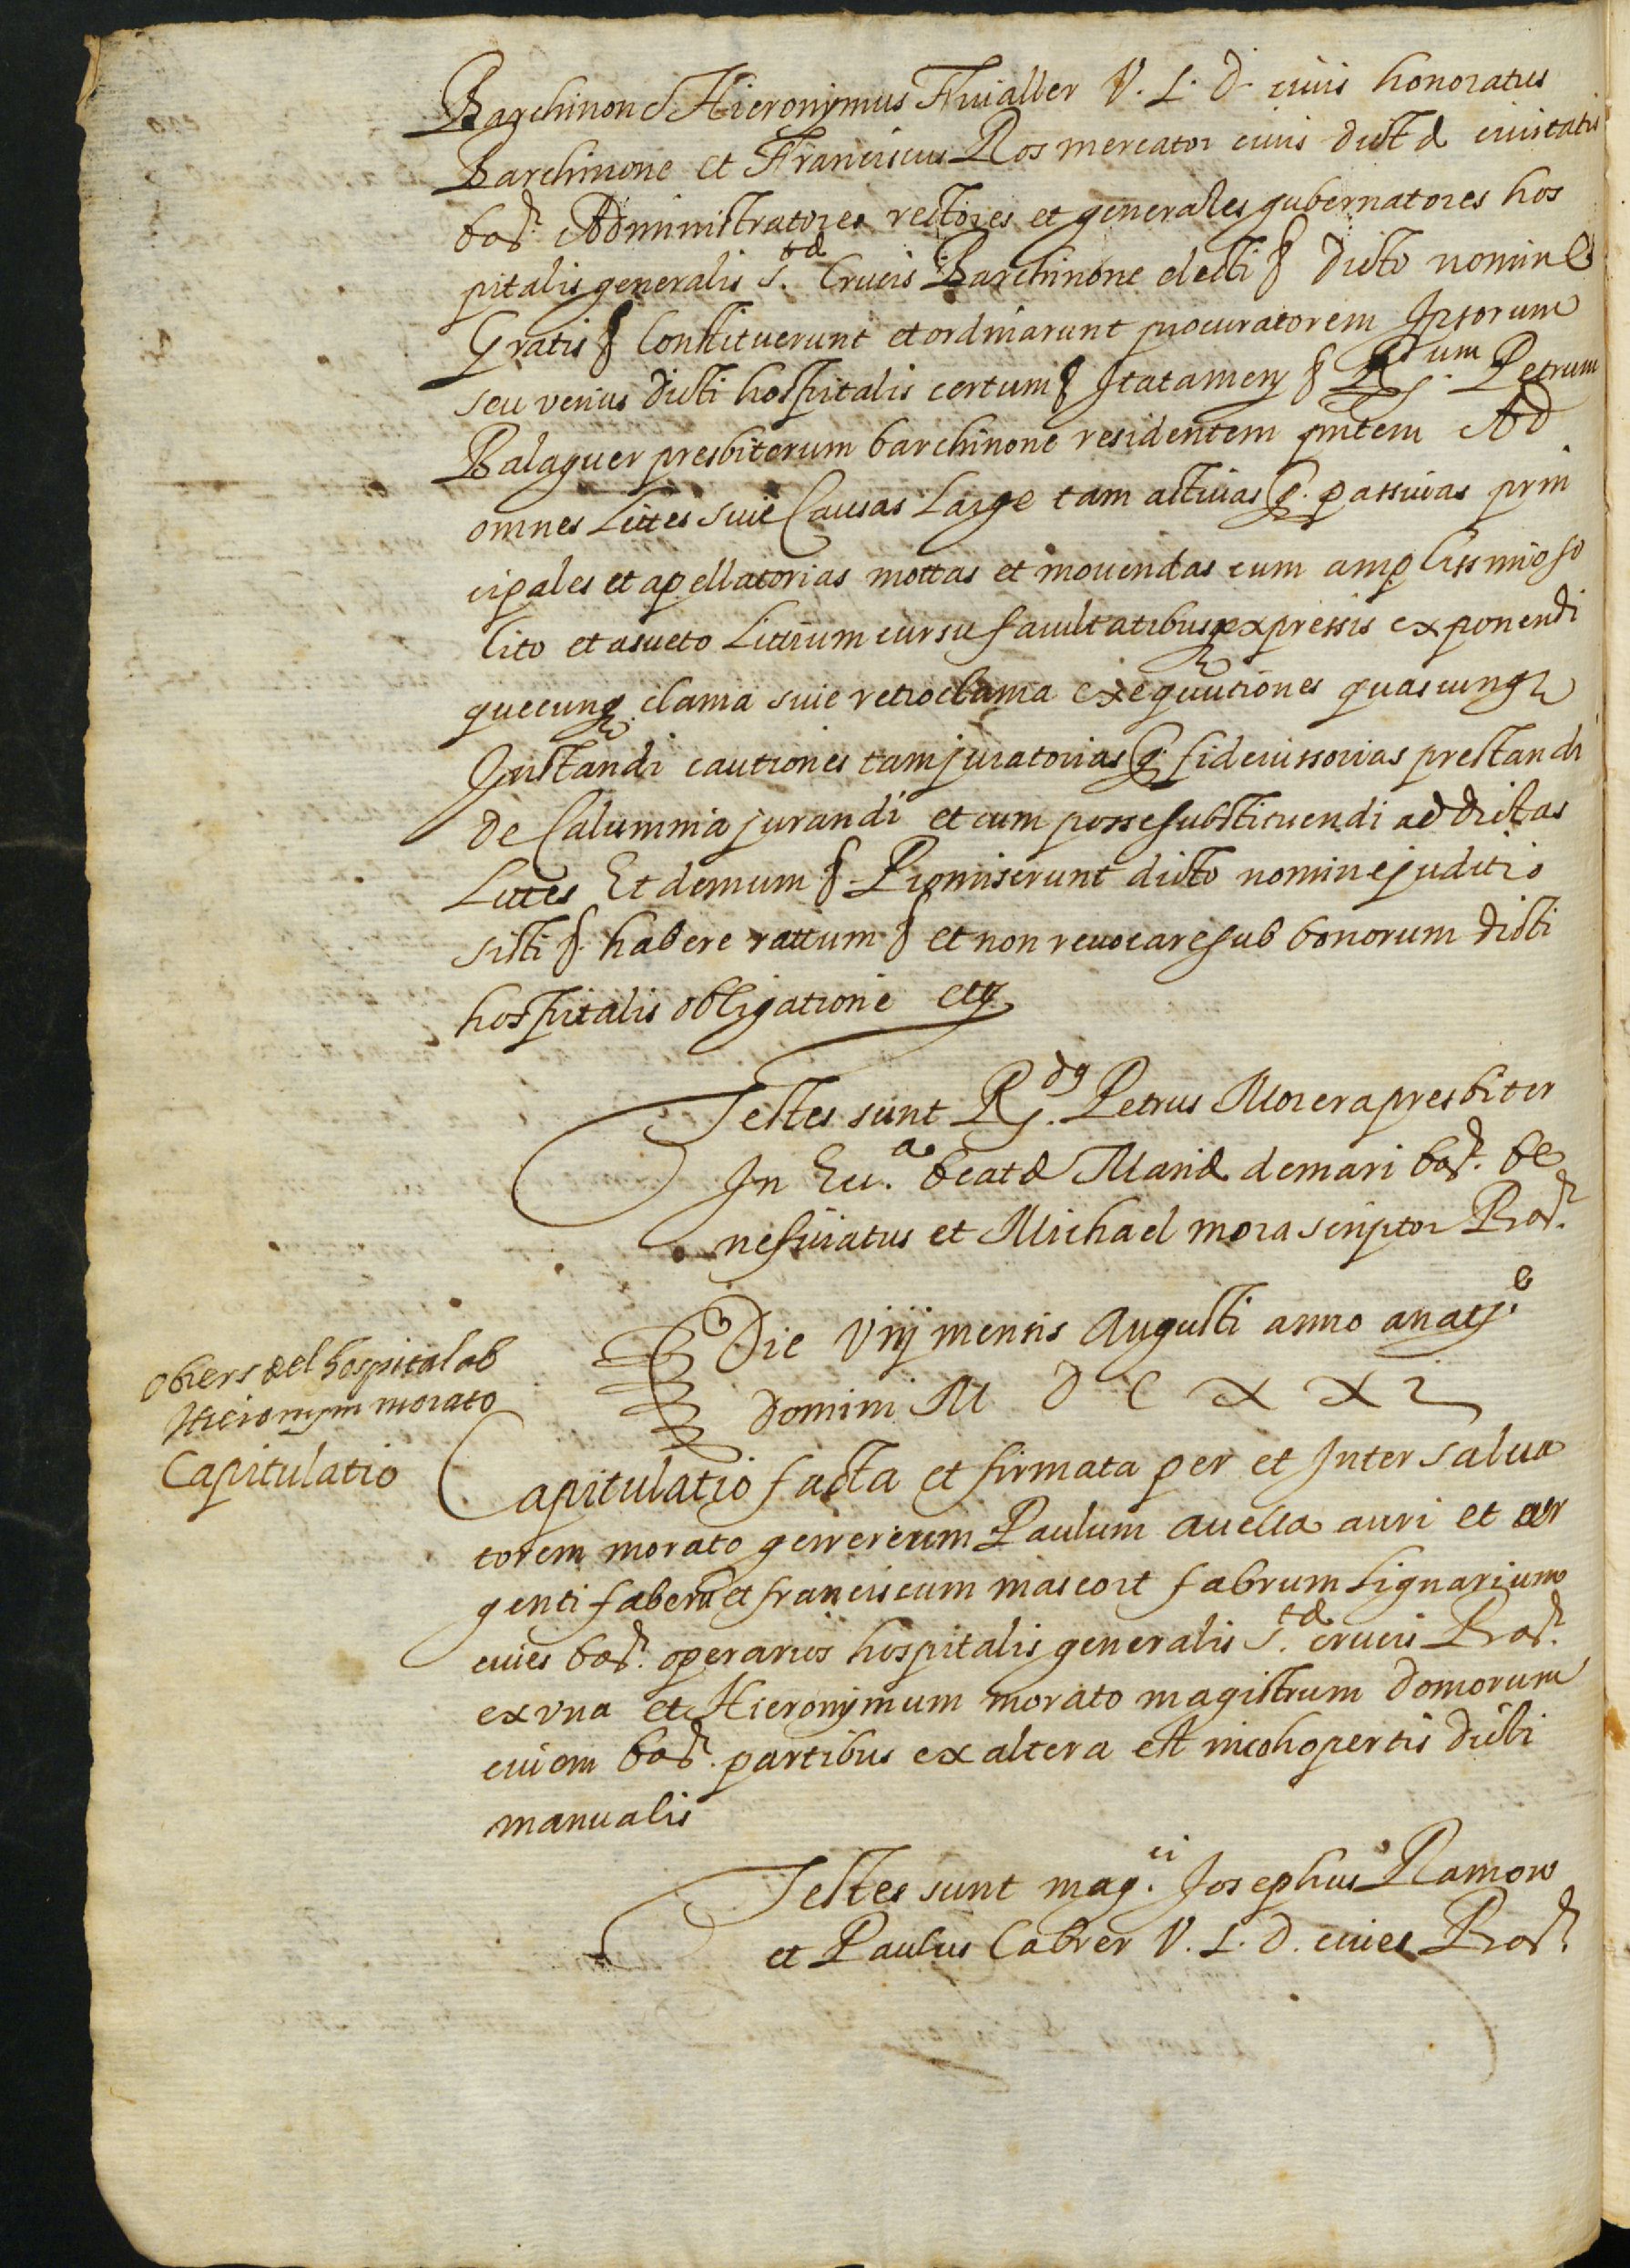 Barchinone Hieronymus Fiualler V. I. D. ciuis honoratus
Barchinone et Franciscus Ros mercator ciuis dictæ ciuitatis
bar. Administratores rectores et generales gubernatores hos
pitalis generalis S.tæ Crucis Barchinone electi & dicto nomine
Gratis & Constituerunt et ordinarunt procuratorem Ipsorum
seu verius dicti hospitalis certum & Itatamen & R.dum Petrum
Balaguer presbiterum barchinone residentem pntem Ad
omnes Littes siue Causas Large tam actiuas q. passiuas prin
cipales et apellatorias mottas et mouendas cum amplissimo so
lito et asueto Littium cursu facultatibusq expressis exponendi
quecunq clama siue retroclama exequutiones quascunq
Instandi cautiones tam juratorias q. fideiussorias prestandi
de Calumnia jurandi et cum posse substituendi ad dictas
Littes Et demum & Promiserunt dicto nomine juditio
sisti & habere rattum & et non reuocare sub bonorum dicti
hospitalis obligatione etc
Testes sunt R.dus Petrus Morera presbiter
In Ecc.a beatæ Mariæ de mari bar. be
nefficiatus et Michael mora scriptor Bar.
Die viij mensis Augusti anno a nat.e
domini M D C X X I
obrers del hospital ab
Hieronym morato
Capitulatio
Capitulatio facta et firmata per et Inter salua
torem morato gerrererum Paulum auella auri et ar
genti fabrum et franciscum mascort fabrum Lignarium
ciues bar. operarios hospitalis generalis S.tæ crucis Bar.
ex vna et Hieronymum morato magistrum domorum
ciuem bar. partibus ex altera est in cohopertis dicti
manualis
Testes sunt mag.ci Josephus Ramon
et Paulus Cabrer V. I. D. ciues Bar.